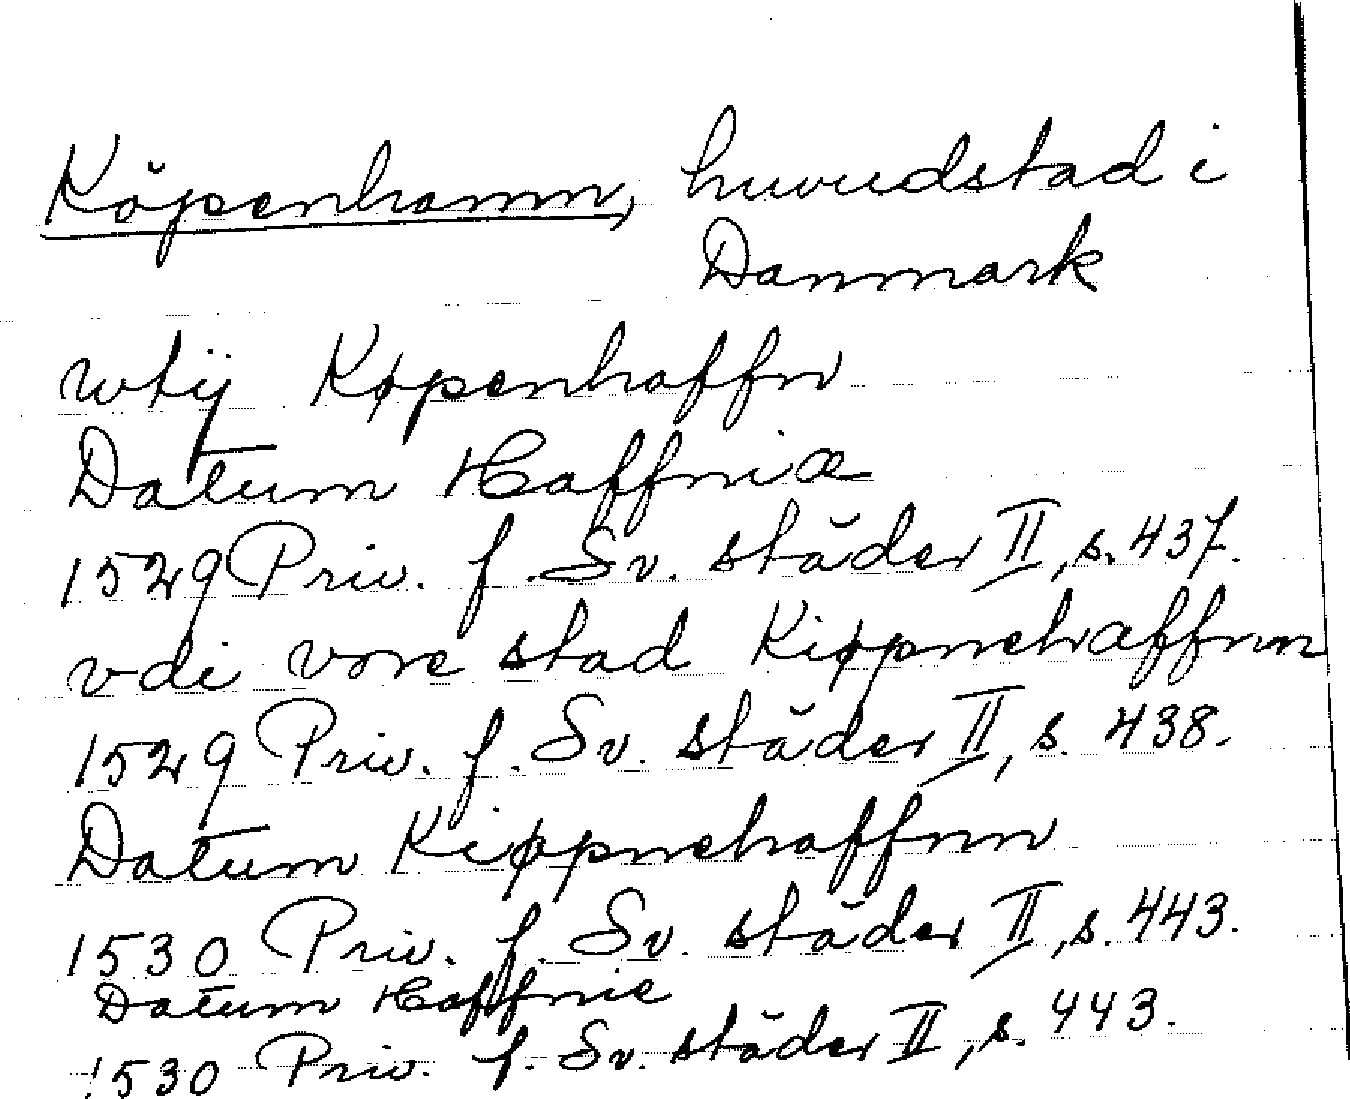 Köpenhamn, huvudstad i
Danmark
wtij Køpenhaffn
Datum Haffniæ
1529 Priv. f. Sv. städer II, s. 437.
vdi vore stad Kiøpnehaffnn
1529 Priv. f. Sv. städer II, s. 438.
Datum Kiøpnehaffnn
1530 Priv. f. Sv. städer II, s. 443.
Datum Haffnie
1530 Priv. f. Sv. städer II, s. 443.